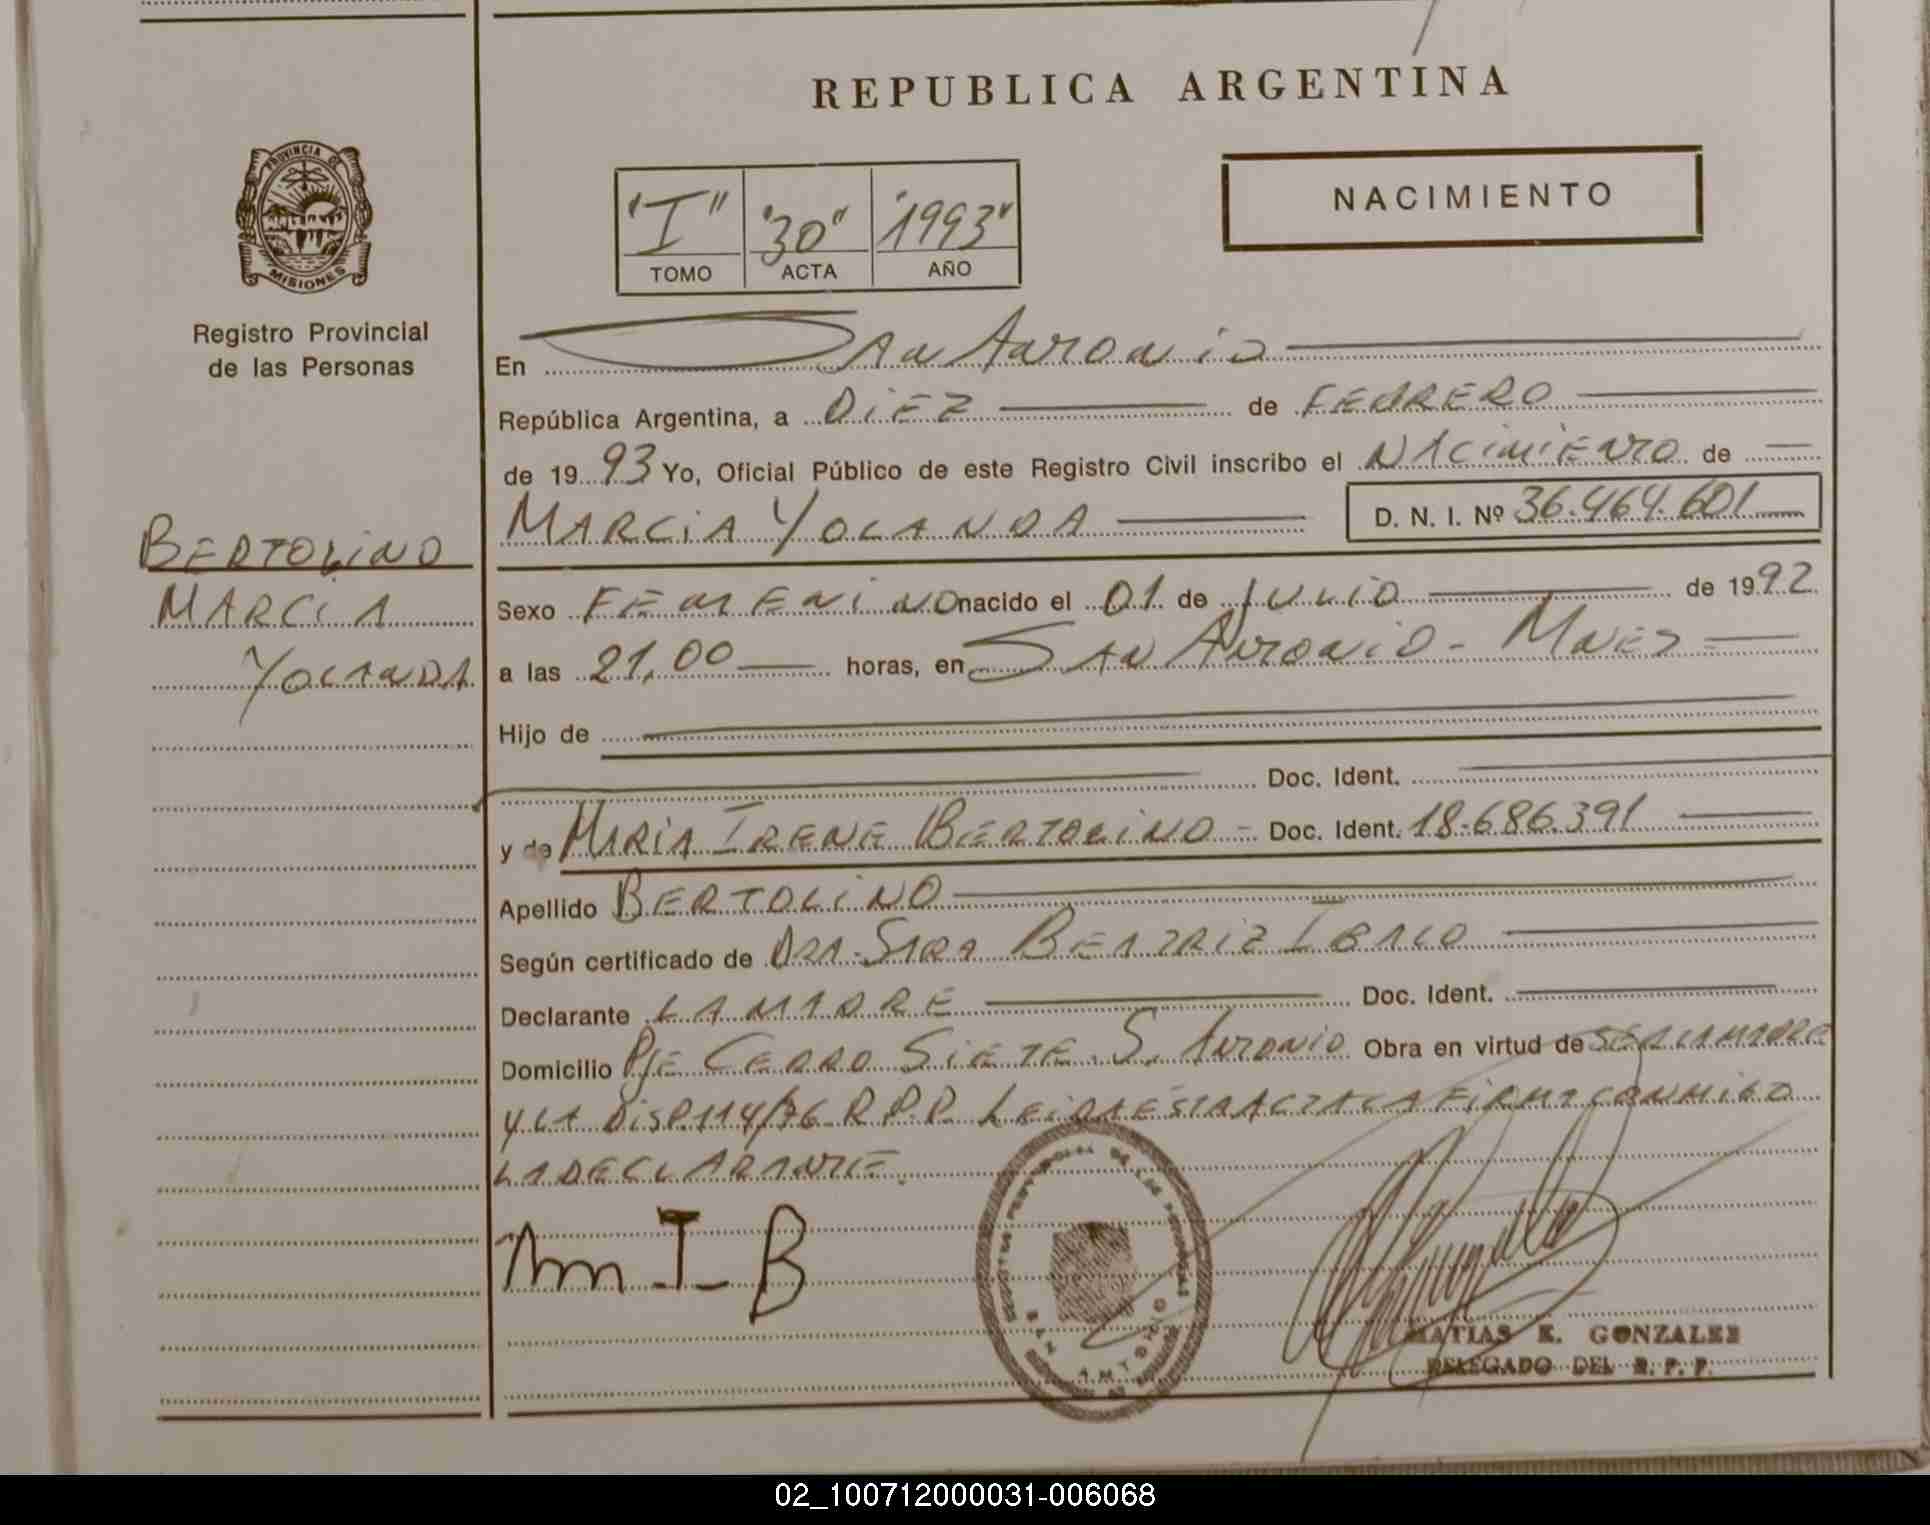 REPUBLICA ARGENTINA
PROVINCIA DE MISIONES
Registro Provincial
de las Personas
NACIMIENTO
"I" "30" "1993"
TOMO ACTA AÑO
En San Antonio
República Argentina, a DIEZ de FEBRERO
de 1993 Yo, Oficial Público de este Registro Civil inscribo el NACIMIENTO de
MARCIA YOLANDA D. N. I. Nº 36.464.601
BERTOLINO
MARCIA
YOLANDA
Sexo FEMENINO nacido el 01 de JULIO de 1992
a las 21,00 horas, en SAN ANTONIO - Mnes
Hijo de
Doc. Ident.
y de MARIA IRENE BERTOLINO - Doc. Ident. 18.686.391
Apellido BERTOLINO
Según certificado de DRA. SARA BEATRIZ
Declarante LA MADRE Doc. Ident.
Domicilio Pje CERRO SIETE S. ANTONIO Obra en virtud de SER LA MADRE
Y LA DISP. 114/76 R.P.P. LEIDA ESTA ACTA LA FIRMA CONMIGO
LA DECLARANTE.
M I B
SAN ANTONIO
MATIAS E. GONZALEZ
DELEGADO DEL R. P. P.
02_100712000031-006068